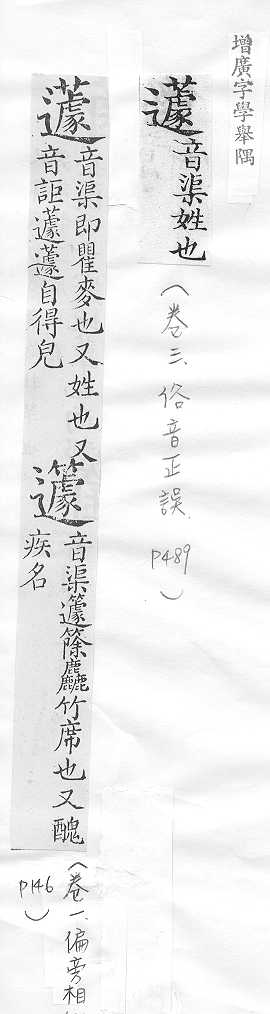 增廣字學舉隅
蘧音渠姓也
（卷三、俗音正誤、P489）
蘧音渠即瞿麥也又姓也又
音詎蘧蘧自得皃
籧音渠籧篨麤竹席也又醜
疾名
（卷一、偏旁相
P146）